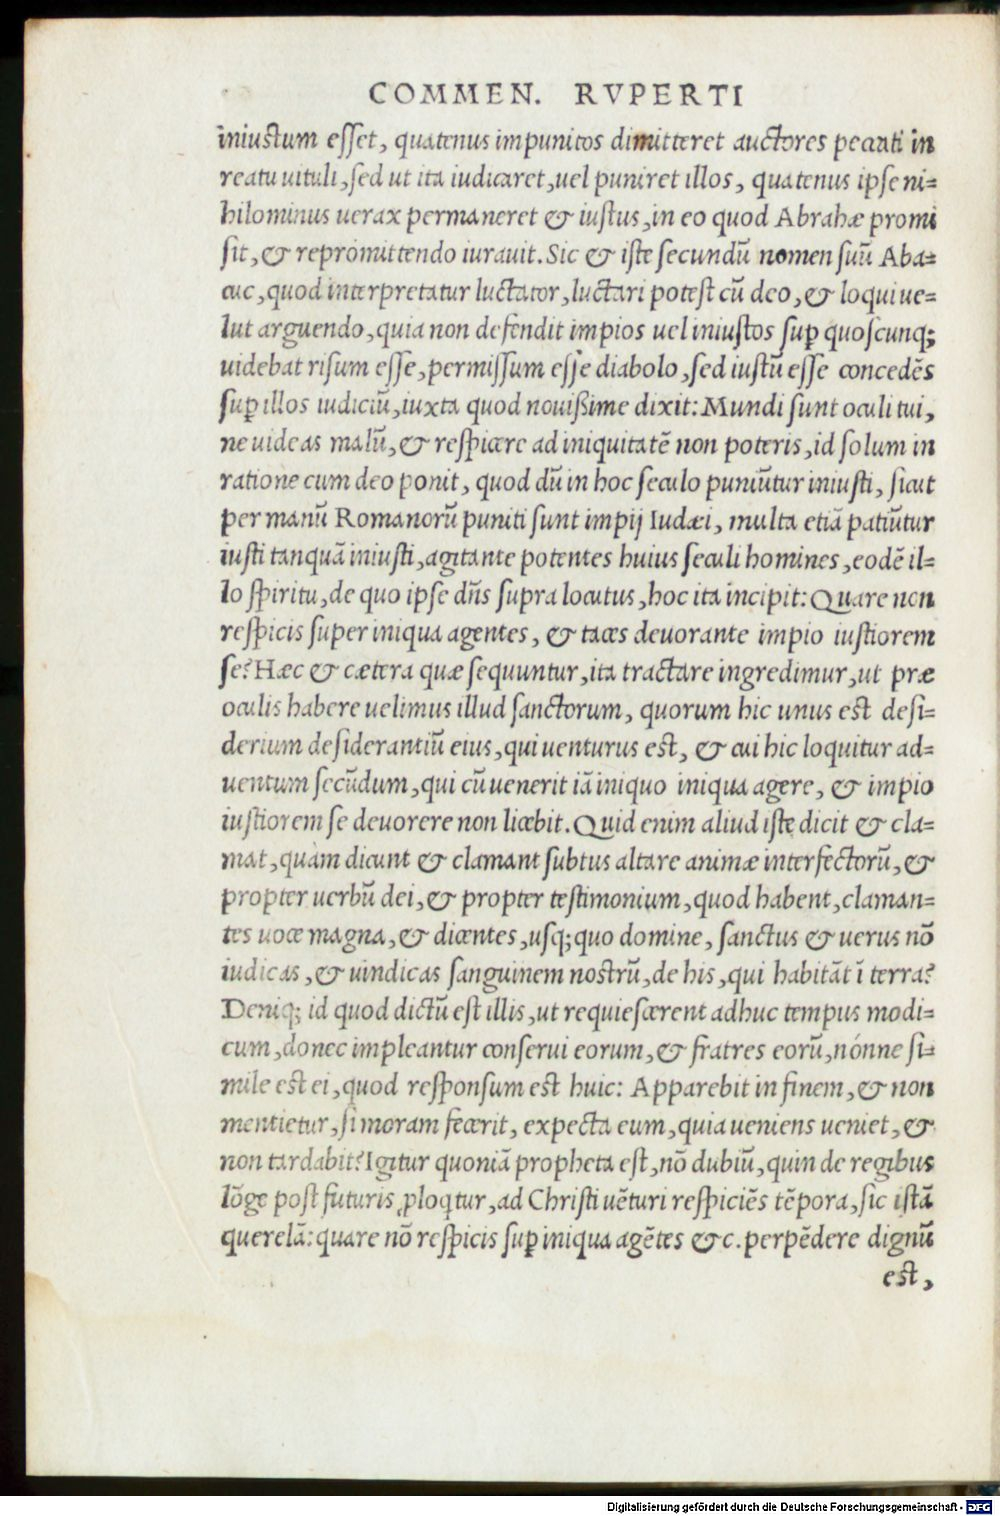 COMMEN. RVPERTI
iniustum esset, quatenus impunitos dimitteret auctores peccati in
reatu uituli, sed ut ita iudicaret, uel puniret illos, quatenus ipse ni=
hilominus uerax permaneret & iustus, in eo quod Abrahæ promi
sit, & repromittendo iurauit. Sic & iste secundū nomen suū Aba=
cuc, quod interpretatur luctator, luctari potest cū deo, & loqui ue=
lut arguendo, quia non defendit impios uel iniustos sup̱ quoscunq;
uidebat risum esse, permissum esse diabolo, sed iustū esse concedēs
sup̱ illos iudiciū, iuxta quod nouißime dixit: Mundi sunt oculi tui,
ne uideas malū, & respicere ad iniquitatē non poteris, id solum in
ratione cum deo ponit, quod dū in hoc seculo puniūtur iniusti, sicut
per manū Romanorū puniti sunt impij Iudæi, multa etiā patiūtur
iusti tanquā iniusti, agitante potentes huius seculi homines, eodē il=
lo spiritu, de quo ipse dn̄s supra locutus, hoc ita incipit: Quare non
respicis super iniqua agentes, & taces deuorante impio iustiorem
se? Hæc & cætera quæ sequuntur, ita tractare ingredimur, ut præ
oculis habere uelimus illud sanctorum, quorum hic unus est desi=
derium desiderantiū eius, qui uenturus est, & cui hic loquitur ad=
uentum secūdum, qui cū uenerit iā iniquo iniqua agere, & impio
iustiorem se deuorere non licebit. Quid enim aliud iste dicit & cla=
mat, quàm dicunt & clamant subtus altare animæ interfectorū, &
propter uerbū dei, & propter testimonium, quod habent, claman=
tes uoce magna, & dicentes, usq; quo domine, sanctus & uerus nō
iudicas, & uindicas sanguinem nostrū, de his, qui habitāt ī terra?
Deniq; id quod dictū est illis, ut requiescerent adhuc tempus modi=
cum, donec impleantur conserui eorum, & fratres eorū, nónne si=
mile est ei, quod responsum est huic: Apparebit in finem, & non
mentietur, si moram fecerit, expecta eum, quia ueniens ueniet, &
non tardabit? Igitur quoniā propheta est, nō dubiū, quin de regibus
lōge post futuris ꝓloqtur, ad Christi uēturi respiciēs tēpora, sic istā
querelā: quare nō respicis sup̱ iniqua agētes &c. perpēdere dignū
est,
Digitalisierung gefördert durch die Deutsche Forschungsgemeinschaft - DFG